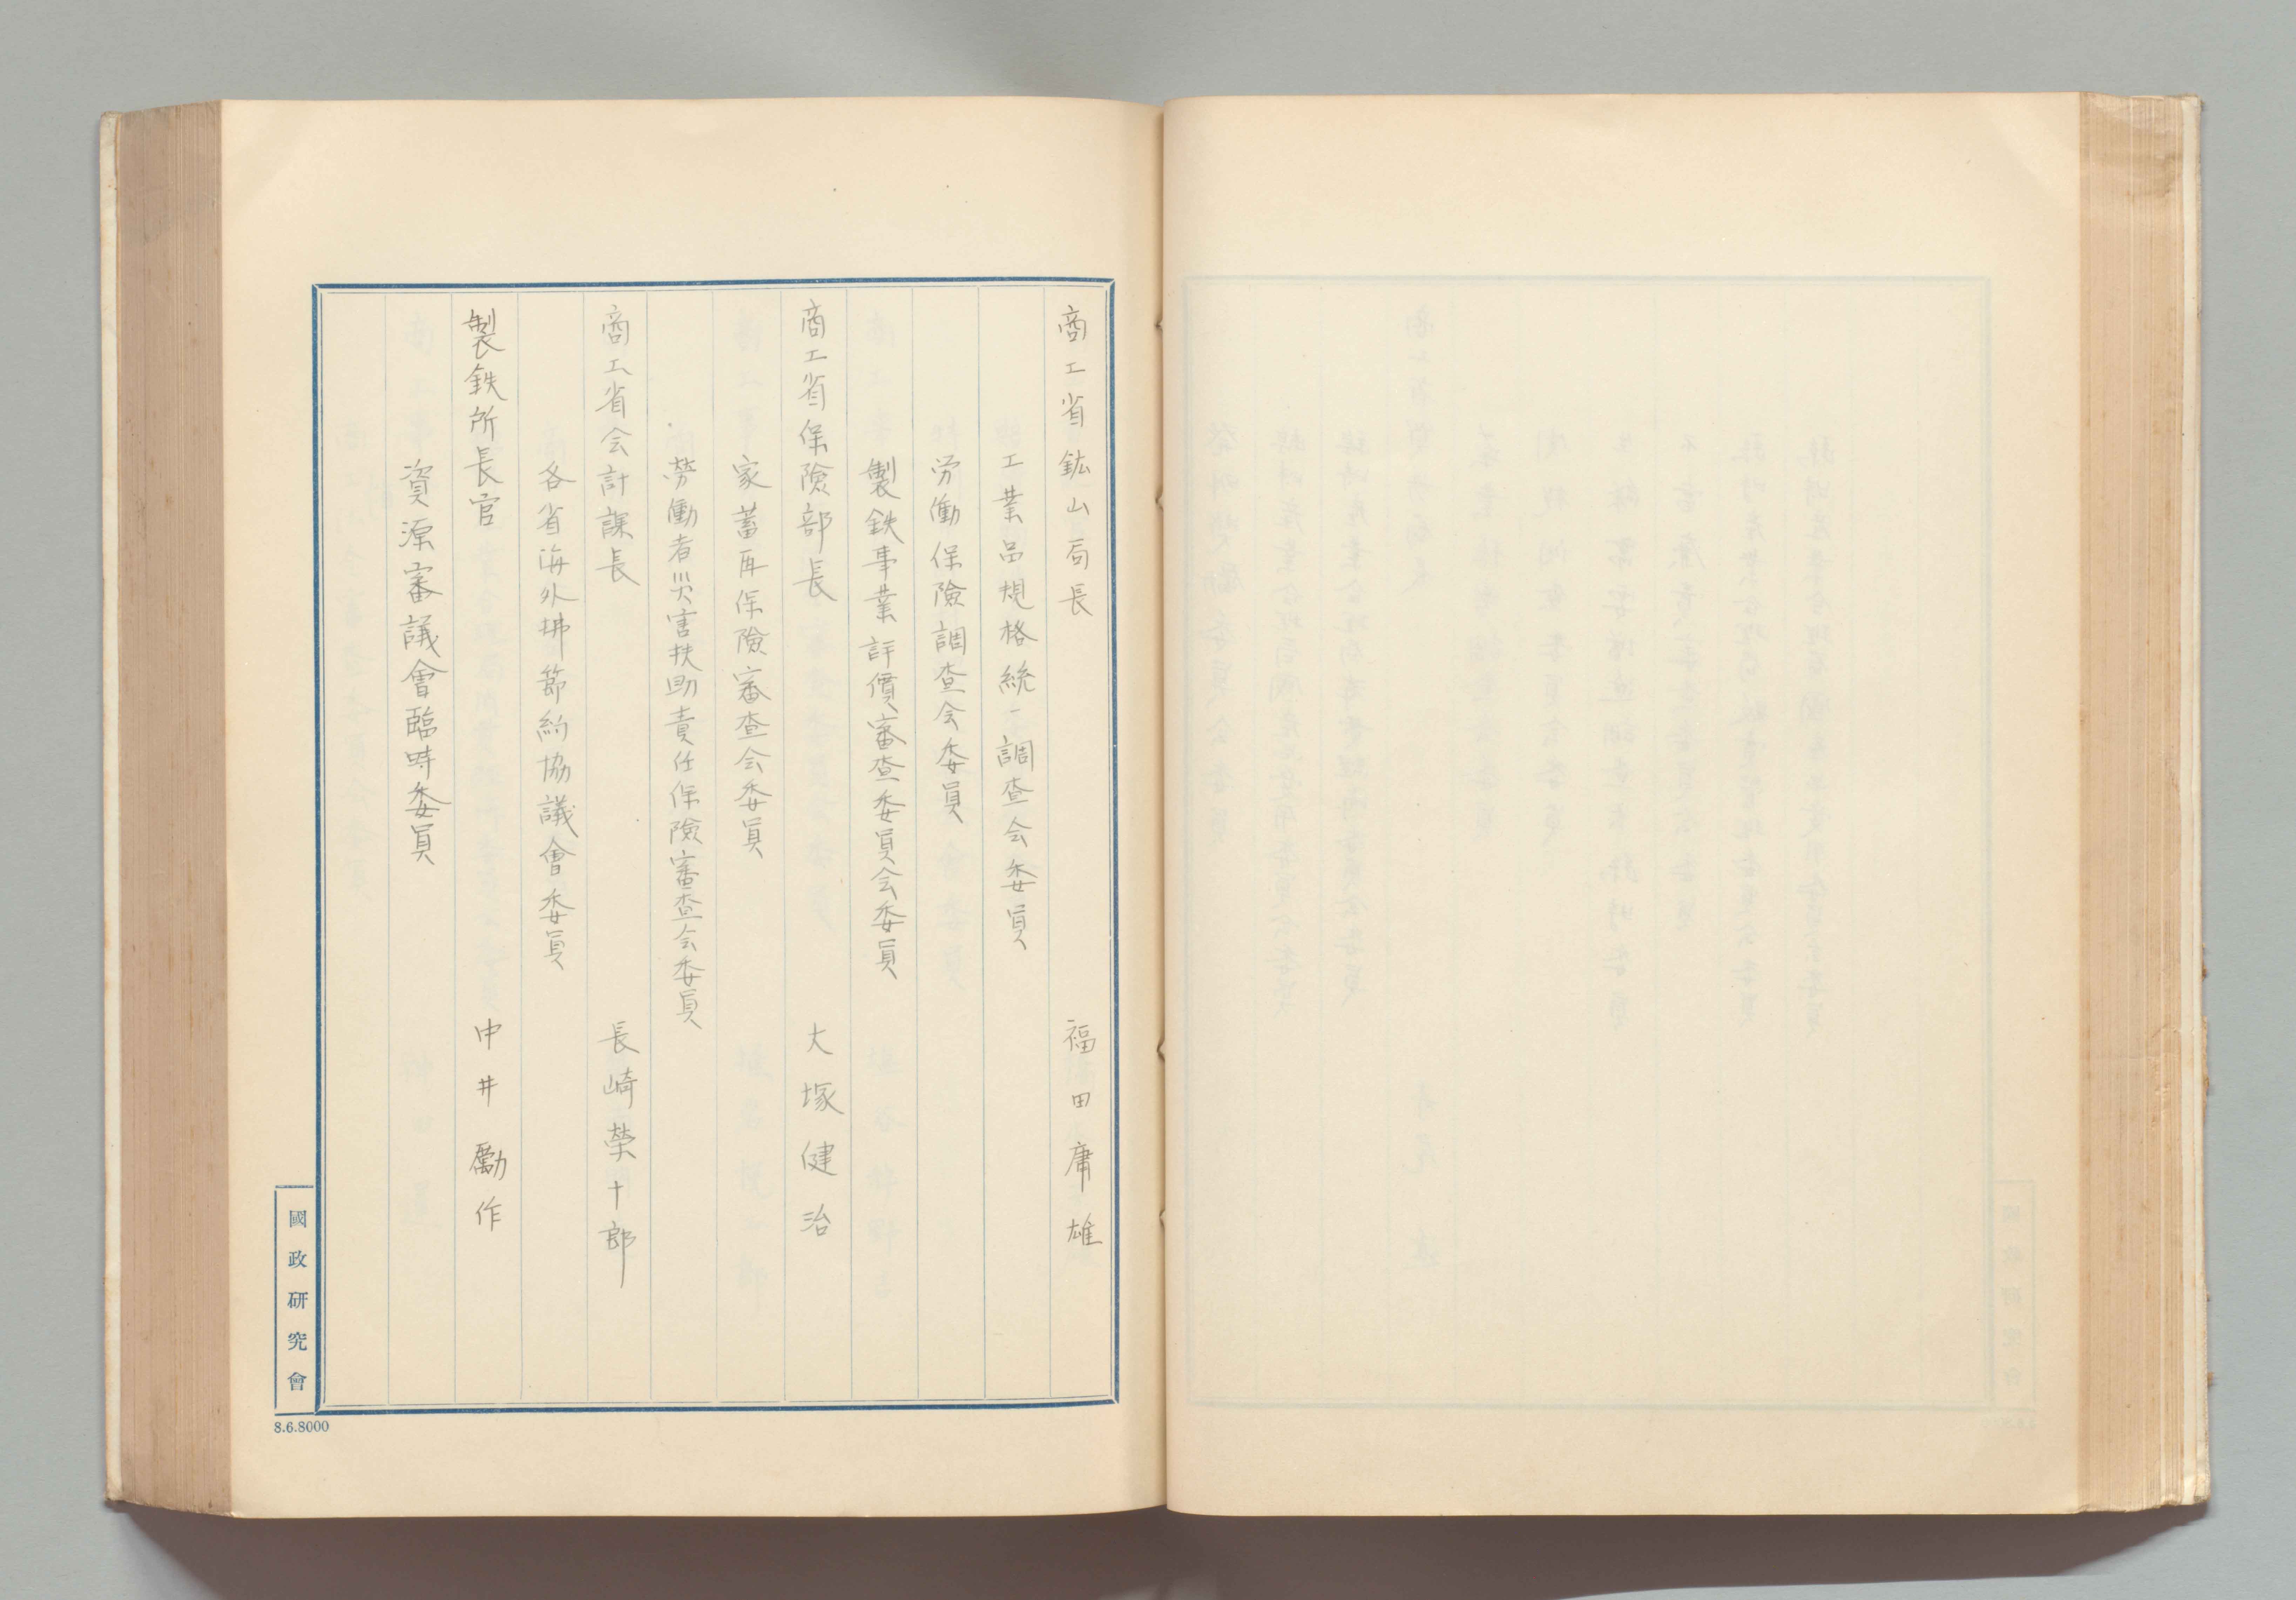 商工省鉱山局長 福田庸雄
工業品規格統一調査会委員
労働保險調査会委員
製鉄事業評價審査委員会委員
商工省保險部長 大塚健治
家蓄再保險審査会委員
労働者災害扶助責任保險審査会委員
商工省会計課長 長崎榮十郎
各省海外拂節約協議會委員
製鉄所長官 中井勵作
資源審議會臨時委員
國政研究會
8.6.8000